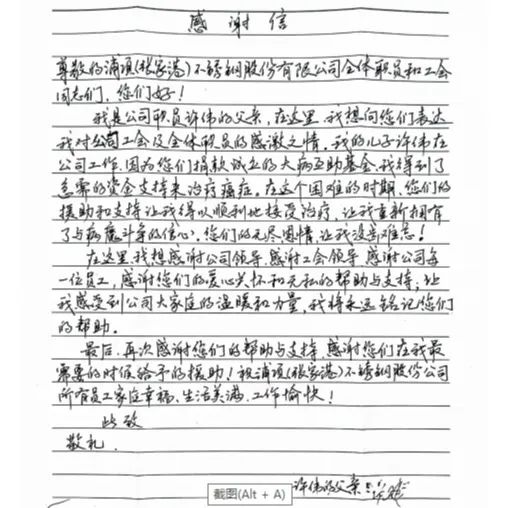 感谢信
尊敬的浦项(张家港)不锈钢股份有限公司全体职员和工会
同志们，您们好！
我是公司职员许伟的父亲，在这里，我想向您们表达
我对公司工会及全体职员的感激之情。我的儿子许伟在
公司工作，因为您们捐款成立的大病互助基金，我得到了
急需的资金支持来治疗癌症。在这个困难的时期，您们的
援助和支持让我得以顺利地接受治疗，让我重新拥有
了与病魔斗争的信心，您们的无尽恩情，让我没齿难忘！
在这里，我想感谢公司领导，感谢工会领导，感谢公司每
一位员工，感谢您们的爱心关怀和无私的帮助与支持，让
我感受到公司大家庭的温暖和力量，我将永远铭记您们
的帮助。
最后，再次感谢您们的帮助与支持，感谢您们在我最
需要的时候给予的援助！祝浦项(张家港)不锈钢股份公司
所有员工家庭幸福、生活美满、工作愉快！
此致
敬礼
许伟的父亲：许
截图(Alt + A)